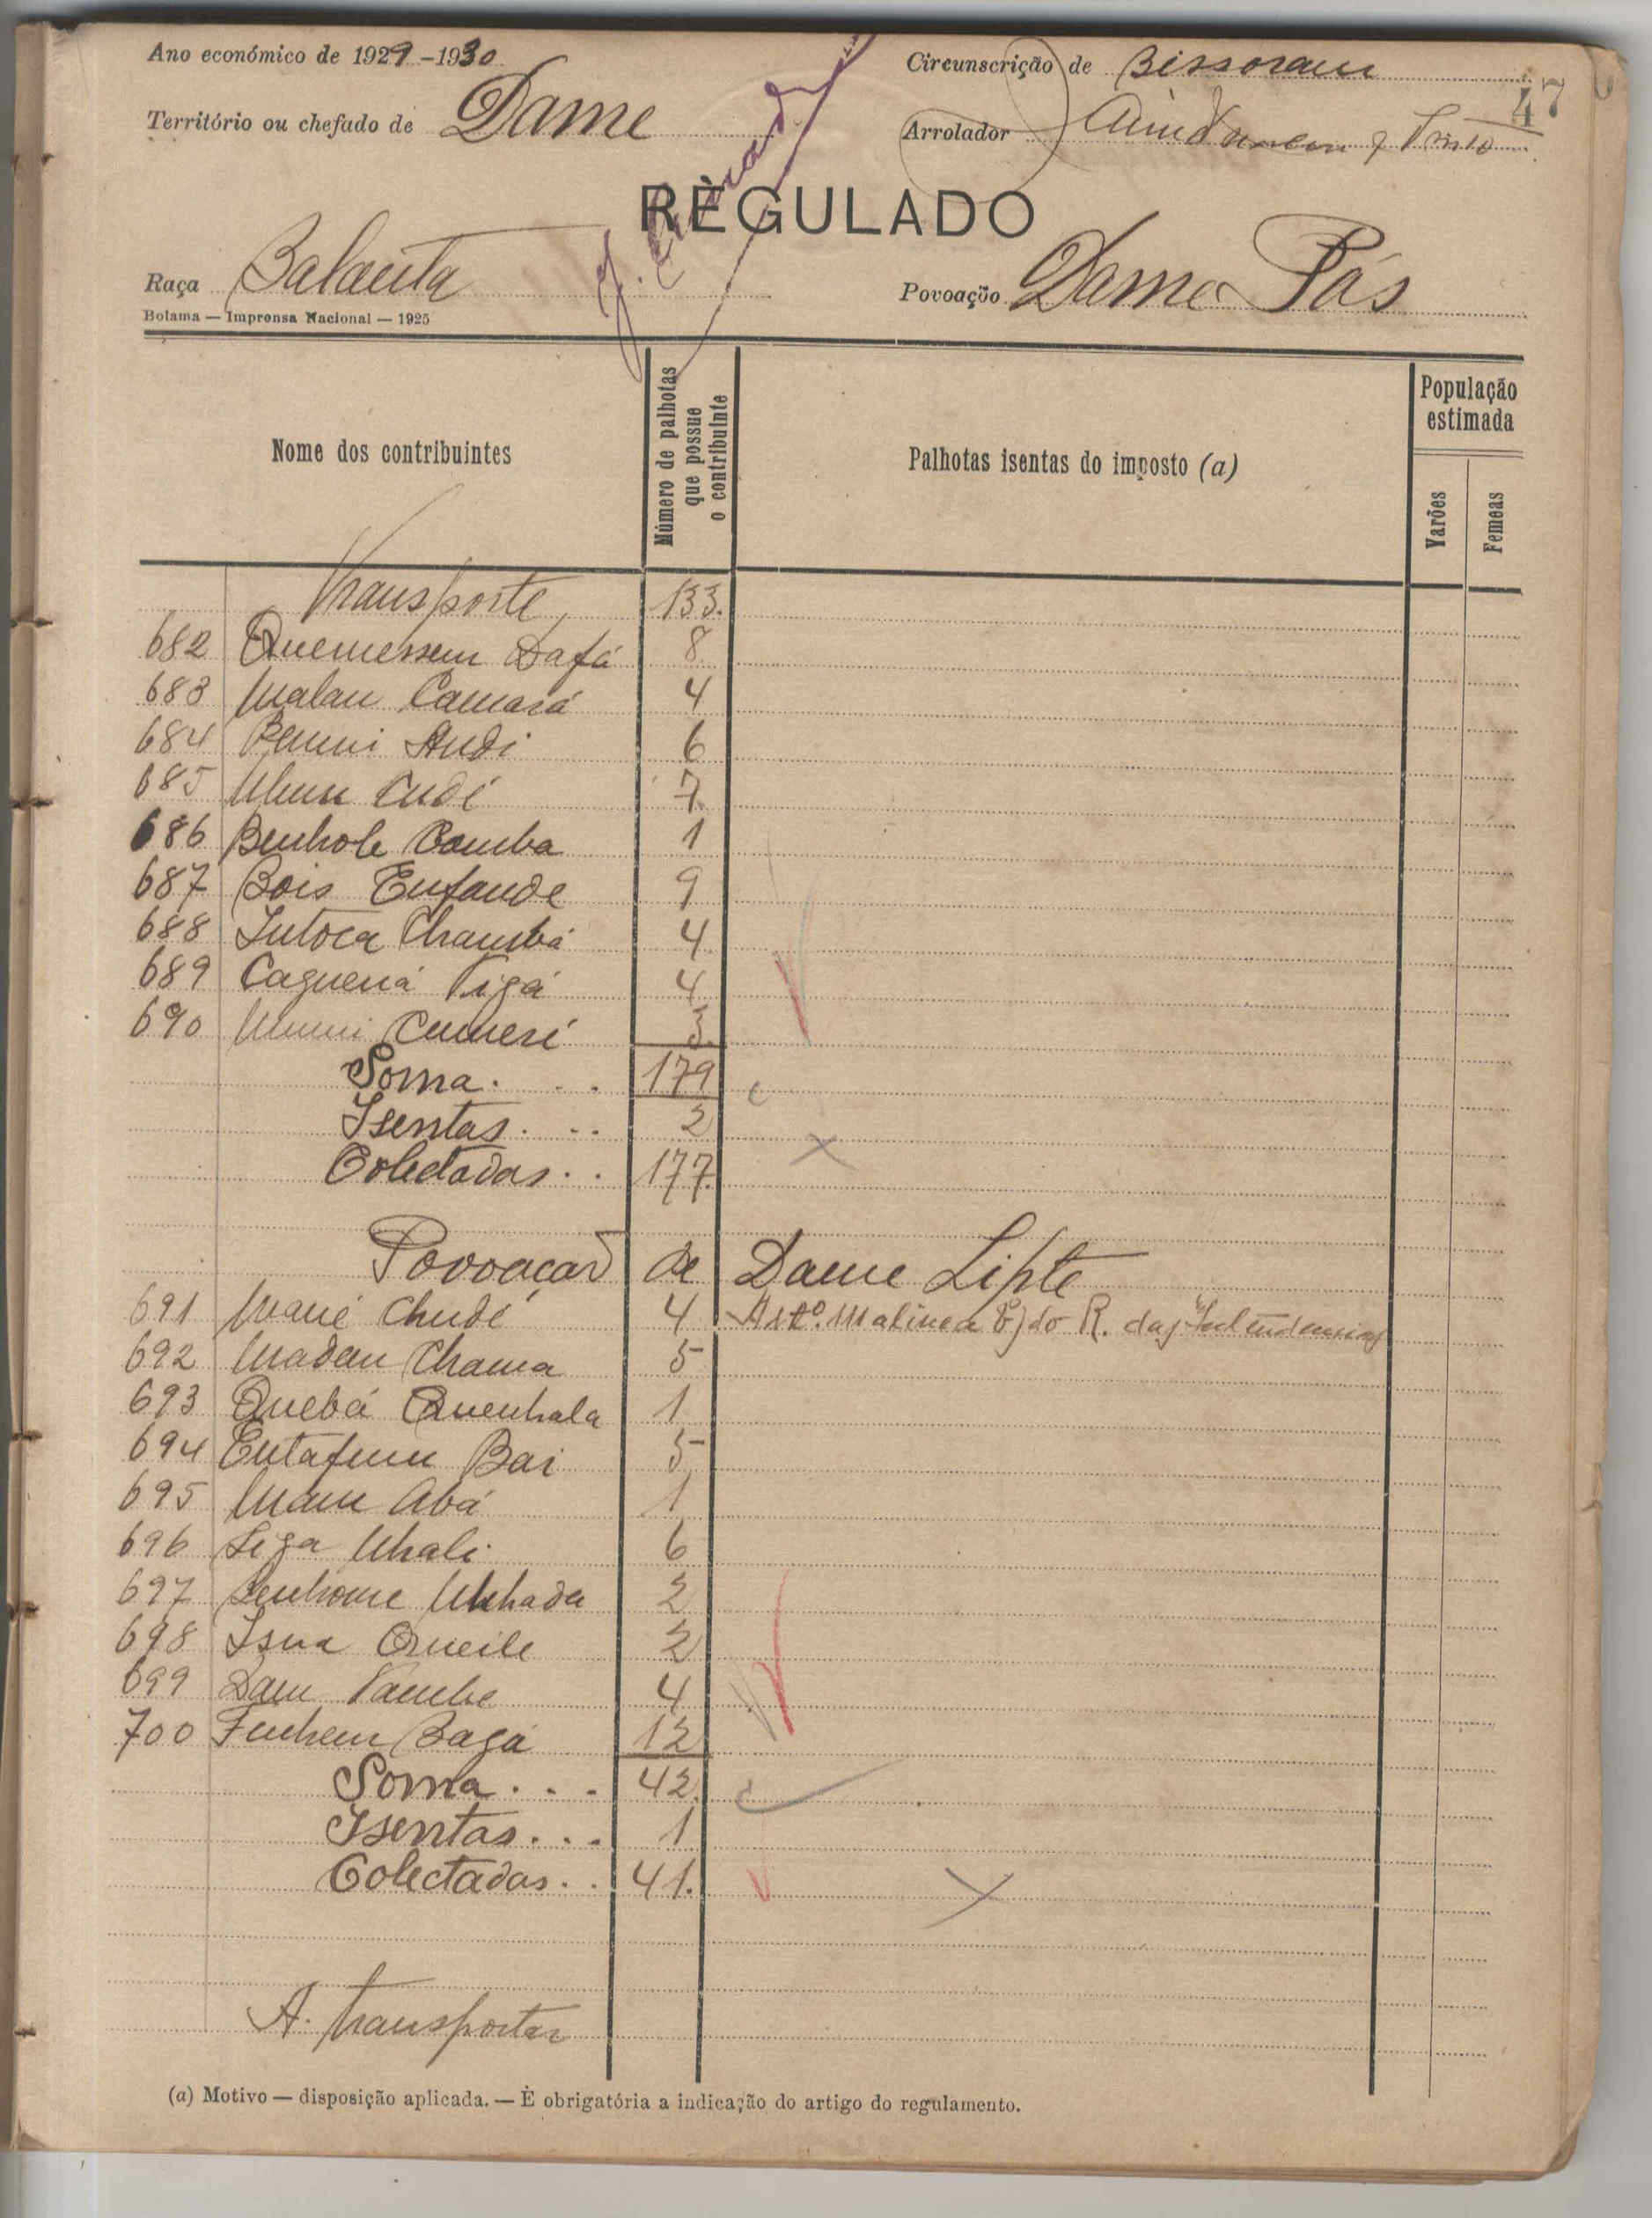 Ano económico de 1929-1930
Circunscrição de Bissoram
47
Território ou chefado de Dame
Arrolador
RÈGULADO
Raça Balanta
Povoação Dame Pás
Bolama — Imprensa Nacional — 1925
Nome dos contribuintes
Número de palhotas que possue o contribuinte
Palhotas isentas do imposto (a)
População estimada
Varões
Femeas
Transporte 133.
682 Quemessem Dafá 8
683 Malan Camará 4
684 Audi 6
685 Cudé 7
686 Benhole Camba 1
687 Bois Enfande 9
688 Intoca Chambá 4
689 Caguená Tigá 4
690 Cumeré 3
Soma . . . 179
Isentas . . . 2
Colectadas . . 177
Povoaçaõ de Dame Lipte
691 Mané Chudé 4 Artº. 111 alinea b) do R. das
692 Madan Chama 5
693 Quebá Quenhala 1
694 Entafum Bai 5
695 Abá 1
696 Siga 6
697 Senhome 2
698 Isna Queile 2
699 Dam 4
700 Bagá 12
Soma . . . 42.
Isentas . . . 1
Colectadas . . 41.
A. transportar
(a) Motivo — disposição aplicada. — È obrigatória a indicação do artigo do regulamento.